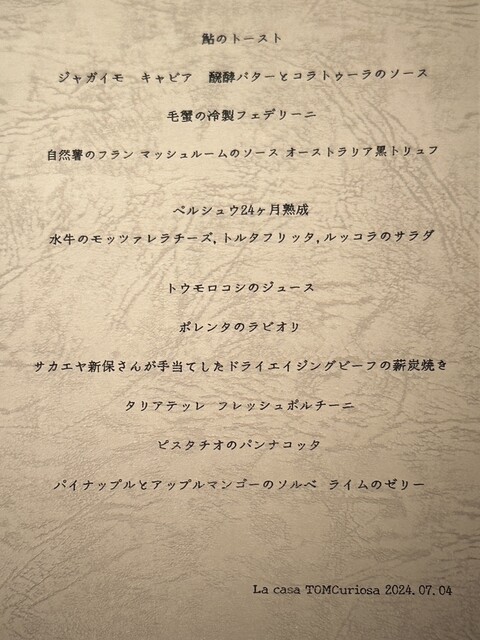 鮎のトースト
ジャガイモ　キャビア　醗酵バターとコラトゥーラのソース
毛蟹の冷製フェデリーニ
自然薯のフラン マッシュルームのソース オーストラリア黒トリュフ
ペルシュウ24ヶ月熟成
水牛のモッツァレラチーズ, トルタフリッタ, ルッコラのサラダ
トウモロコシのジュース
ポレンタのラビオリ
サカエヤ新保さんが手当てしたドライエイジングビーフの薪炭焼き
タリアテッレ　フレッシュポルチーニ
ピスタチオのパンナコッタ
パイナップルとアップルマンゴーのソルベ　ライムのゼリー
La casa TOMCuriosa 2024.07.04